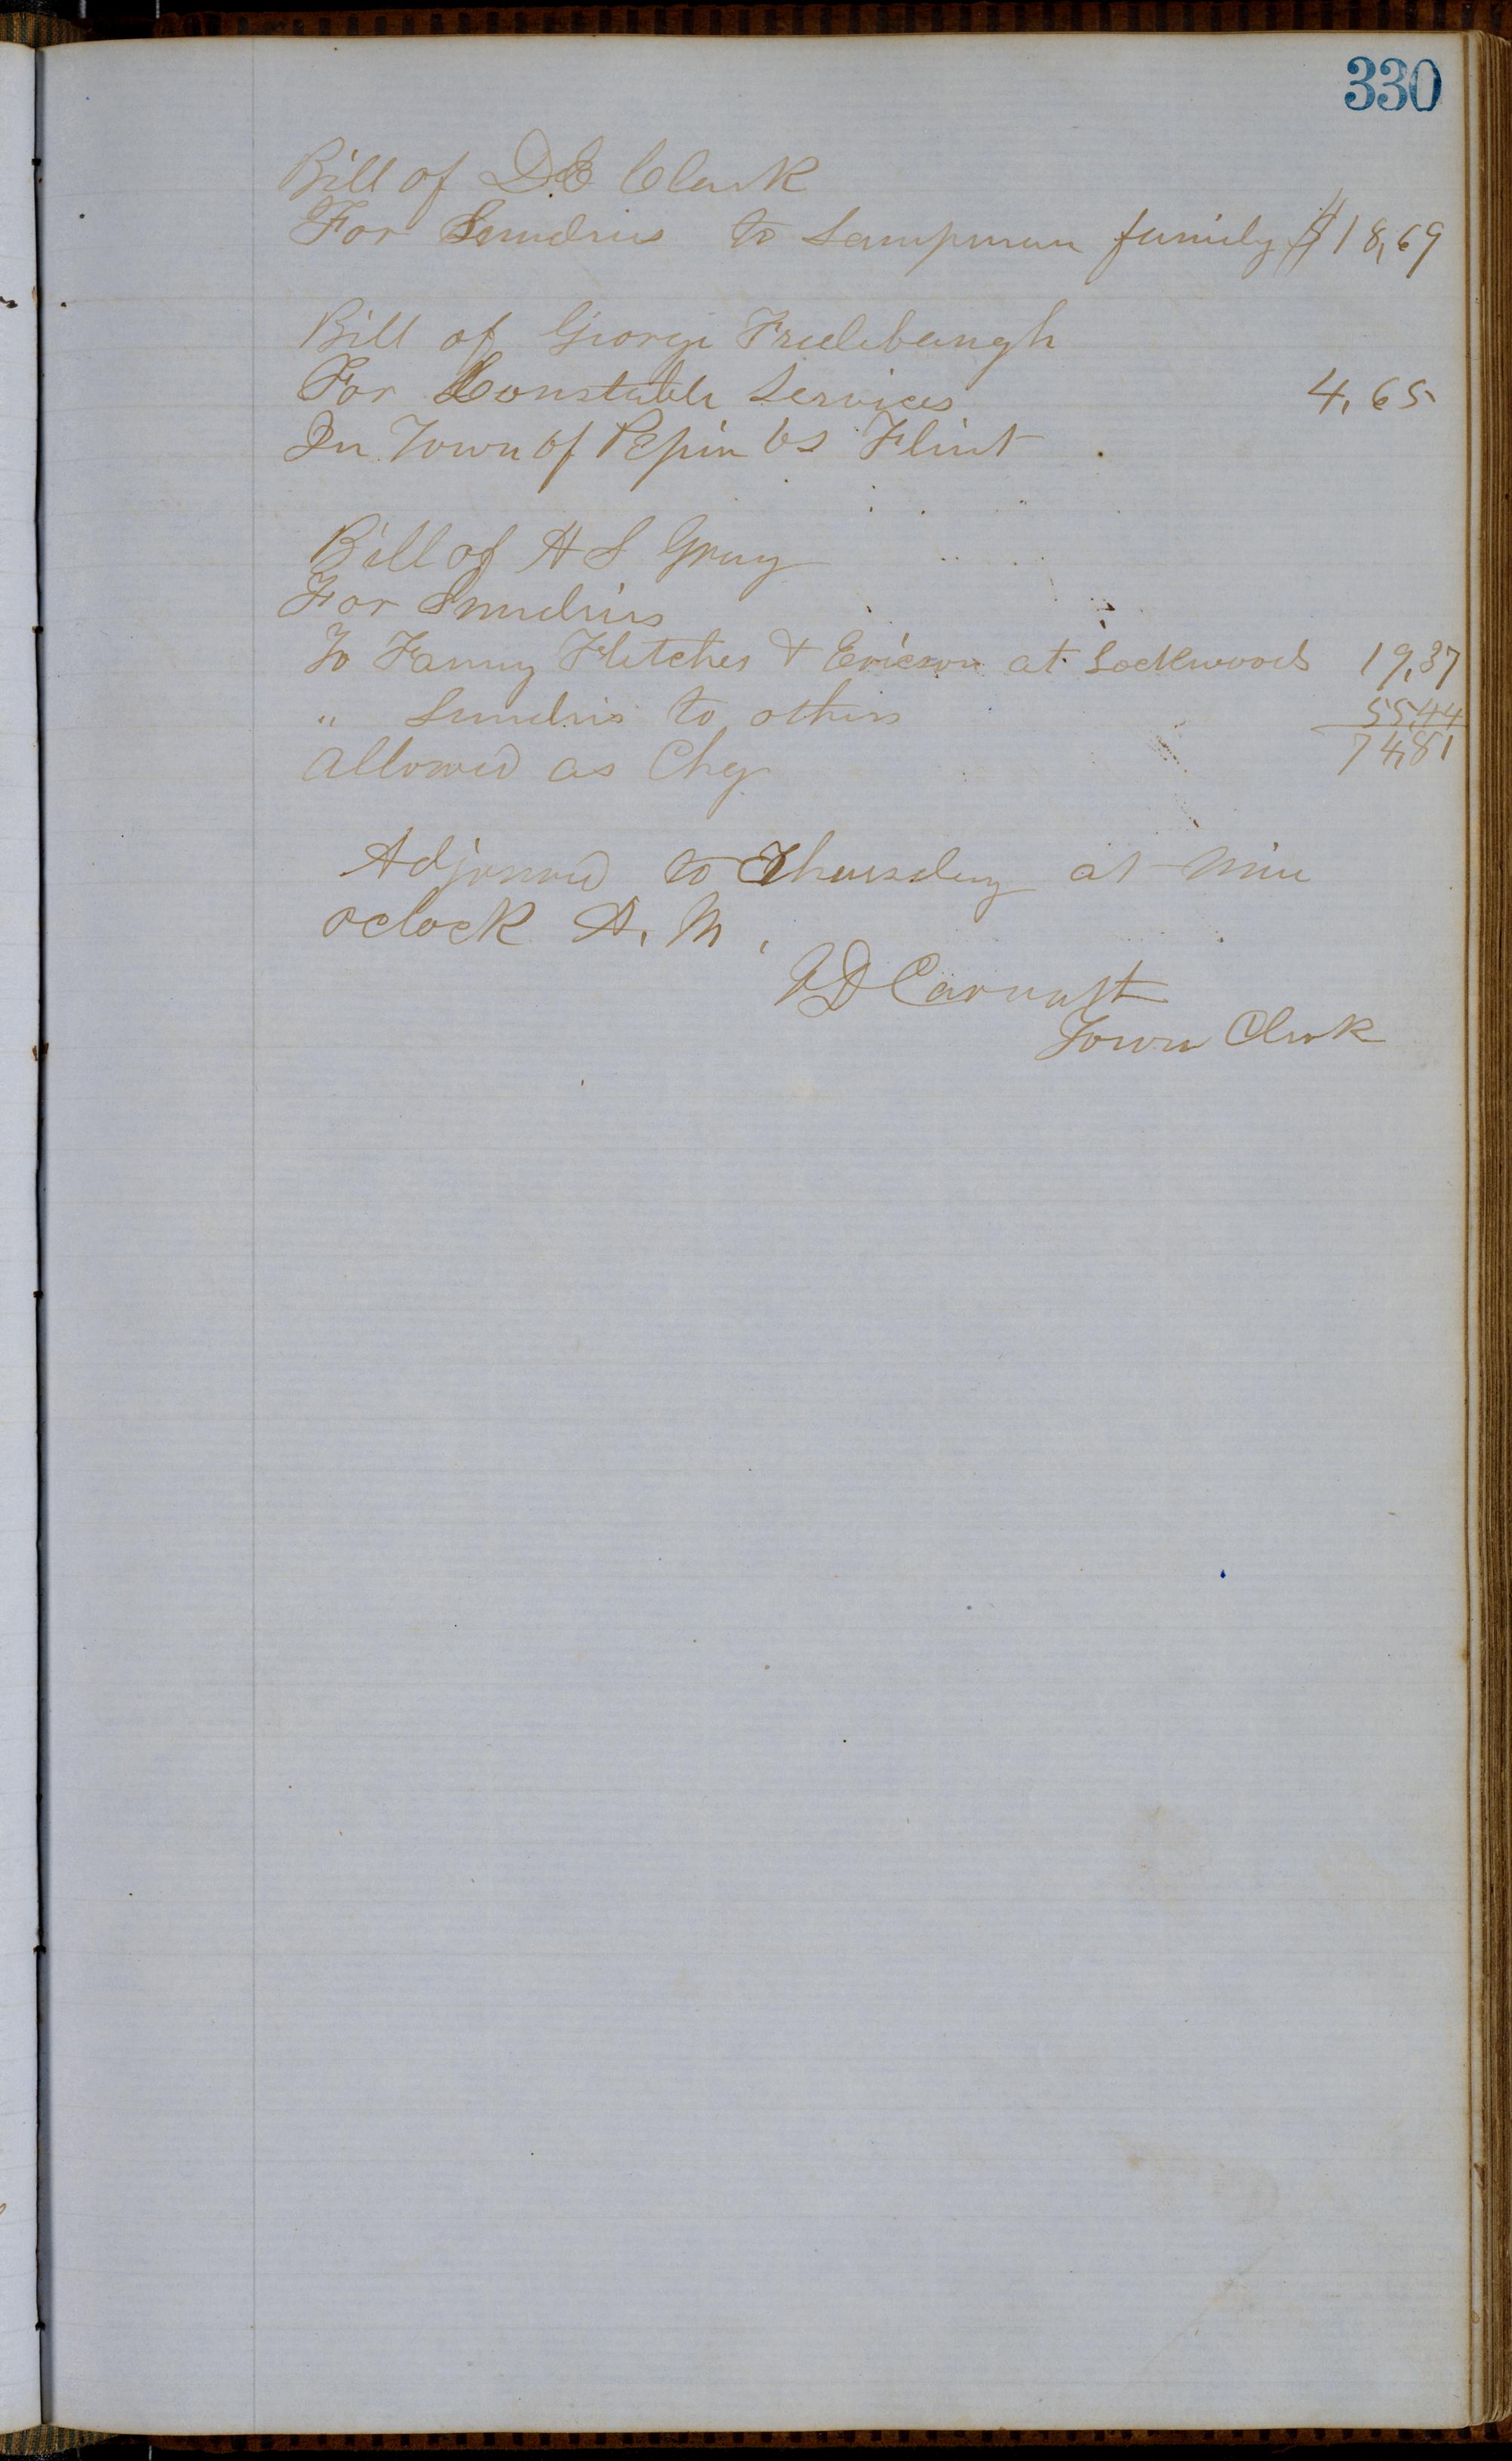 330
Bill of D E Clark
For Sundries to Lampman family $18,69
Bill of George Freelebaugh
For Constable Services 4,65
In Town of Pepin vs Flint
Bill of H S Gray
For Sundries
To Fanny Fletcher & Ericson at Lockwoods 19,37
" Sundris to others 55,44
allowed as Chg 74,81
Adjorned to Thursday at Nine
oclock A. M.
Town Clerk